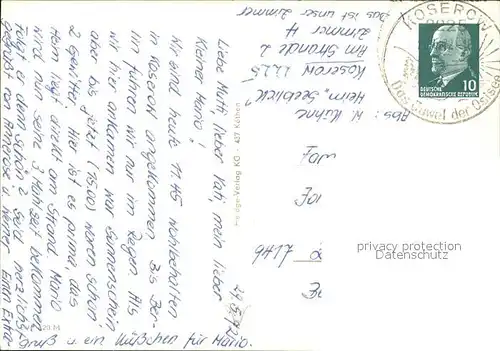 Liebe Mutti, lieber Vati, mein lieber
Kleiner Mario!
Wir sind heute 11.45 wohlbehalten
in Koserow angekommen. Bis Ber-
lin fuhren wir nur im Regen. Als
wir hier ankamen war Sonnenschein
aber bis jetzt (15.00) waren schon
2 Gewitter. Hier ist es prima, das
Heim liegt direkt am Strand. Mario
wird nun seine 3. Mahlzeit bekommen
Folgt er denn schön? Seid herzlichst
gegrüßt von Annerose u. Werner. Extra-
gruß u. ein Küßchen für Mario.
Verlag KG · 437 Köthen
Abs: W. Kühne
Heim "Seeblick"
Koserow 2225
Am Strande 2
Zimmer 4
Das ist unser Zimmer
KOSEROW
2225
der Ostsee
10
DEUTSCHE
DEMOKRATISCHE REPUBLIK
9417
privacy protection
DARABANTH.COM